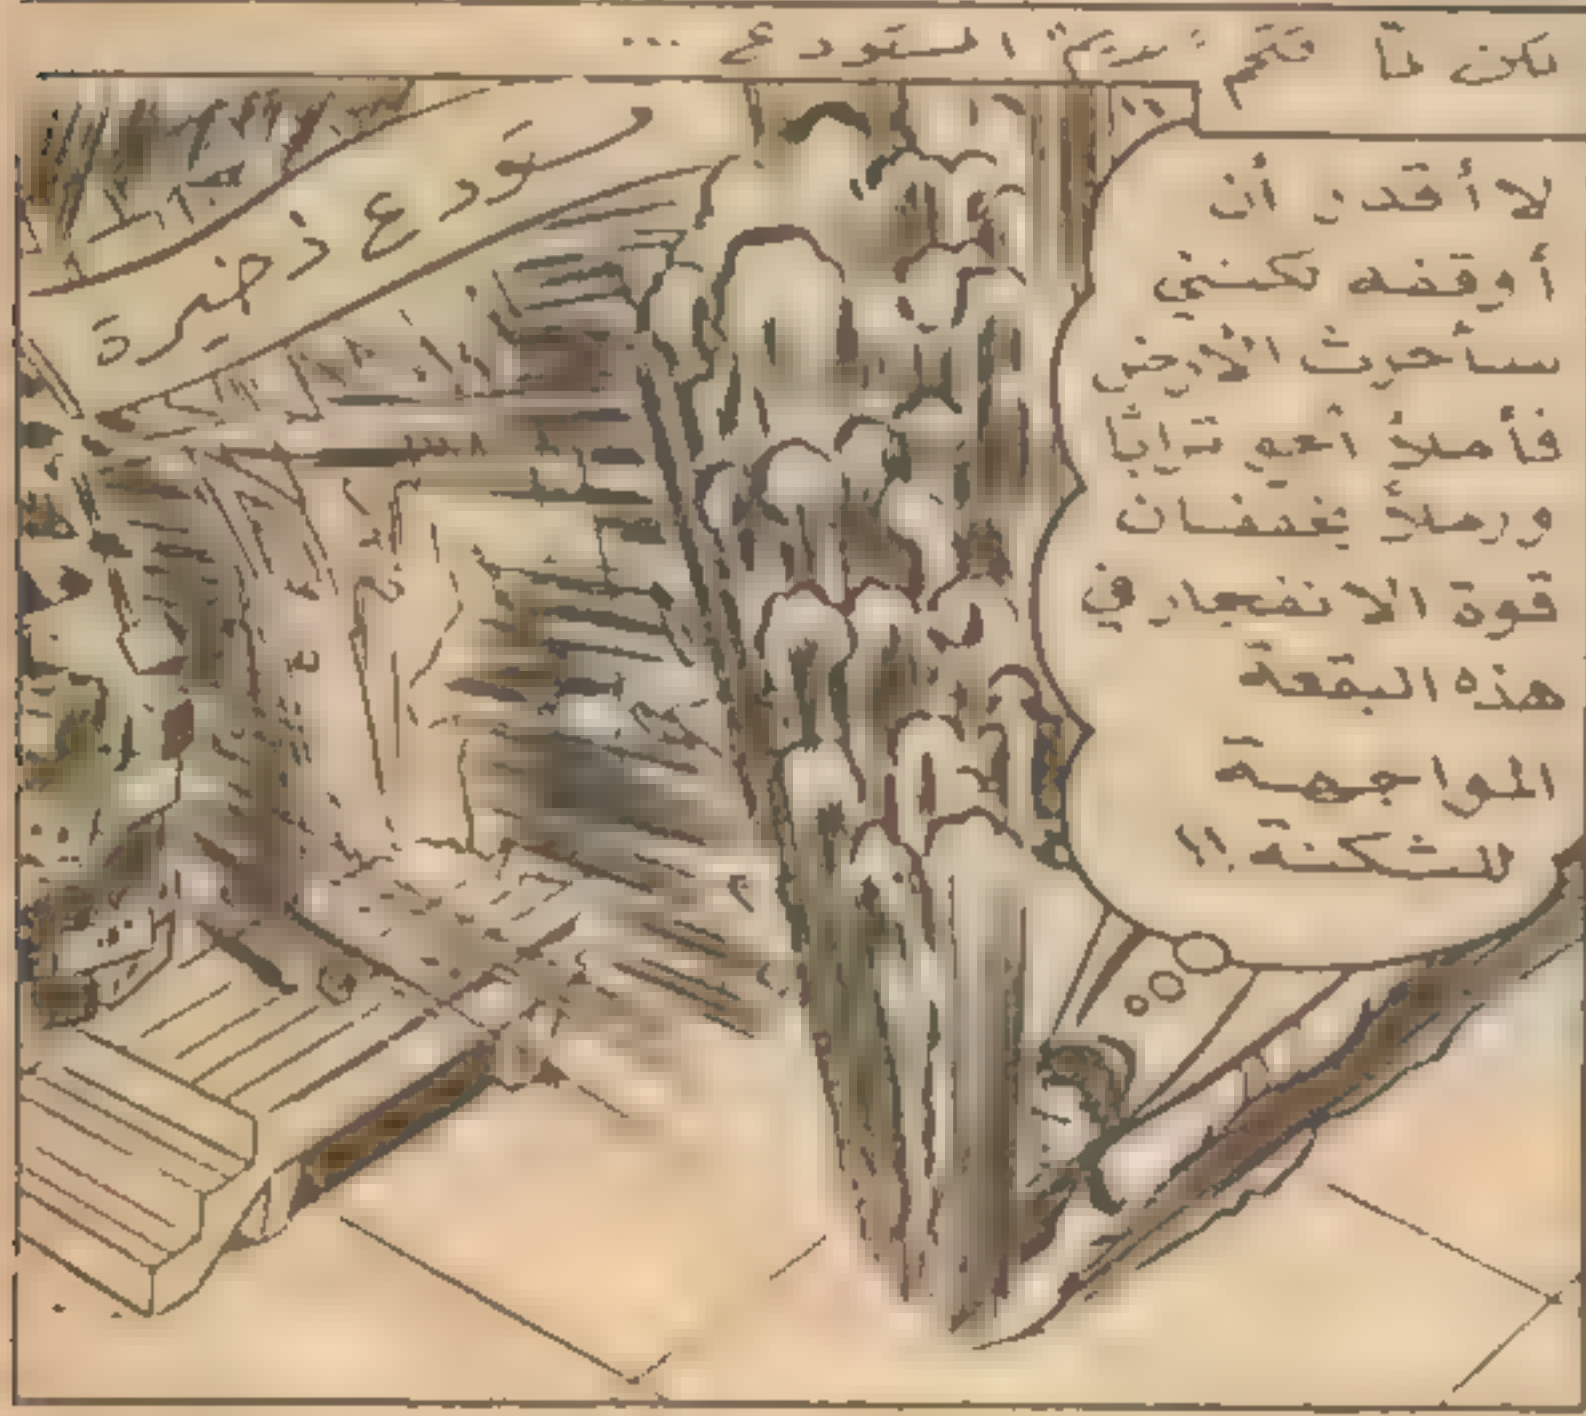 لكن لمّا فتحَ "ريم" المستودع ...
لا أقدر أن
أوقفه لكنني
سأحرث الأرض
فأملأ الجو ترابًا
ورملاً يخففان
قوة الانفجار في
هذه البقعة
المواجهة
للثكنة !!
مستودع ذخيرة